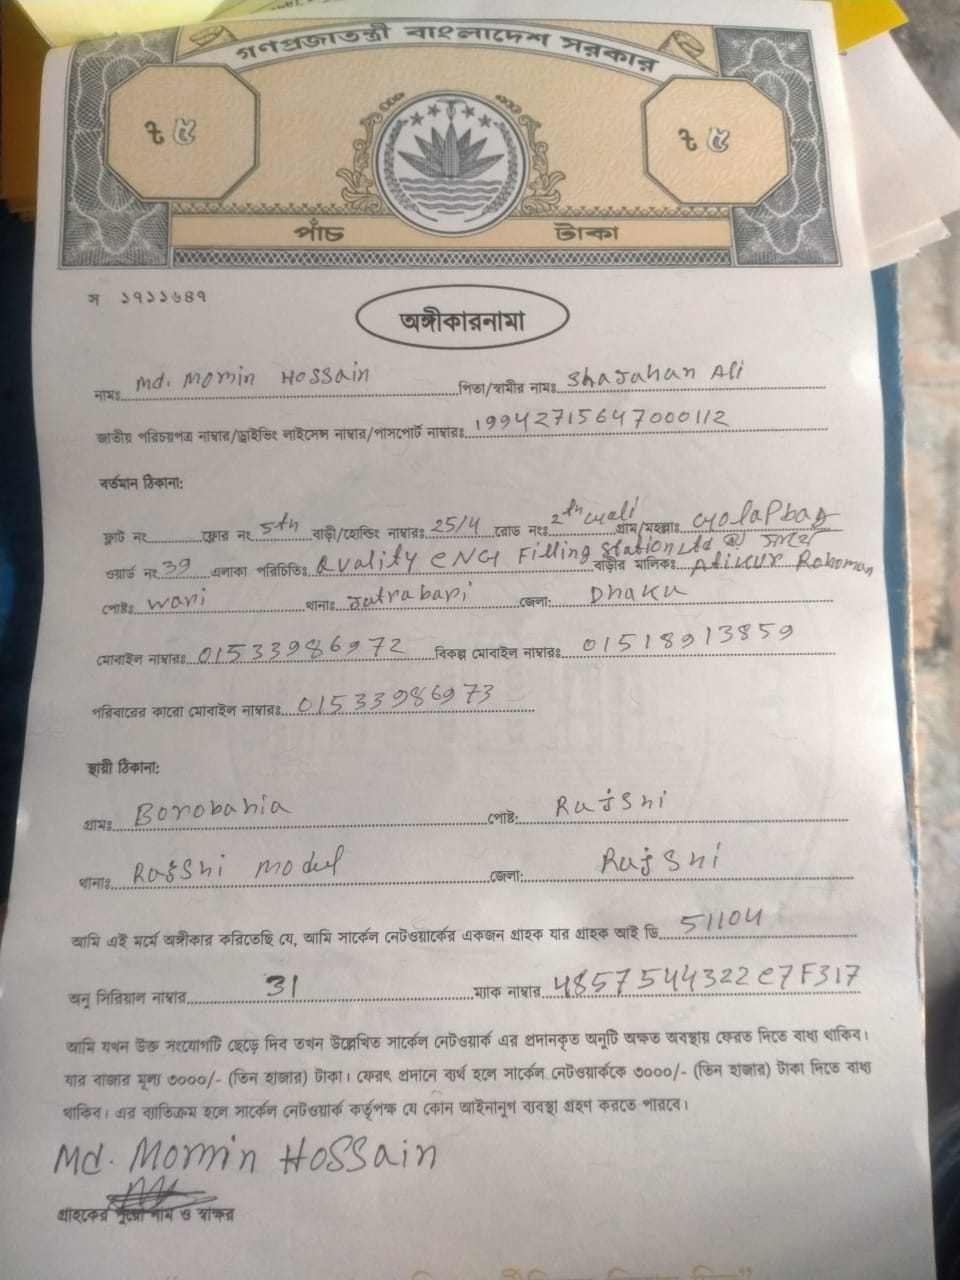 গণপ্রজাতন্ত্রী বাংলাদেশ সরকার
৳ ৫ ৳ ৫
পাঁচ টাকা
স ১৭১১৬৪৭
অঙ্গীকারনামা
নামঃ Md. Momin Hossain পিতা/স্বামীর নামঃ Shajahan Ali
জাতীয় পরিচয়পত্র নাম্বার/ড্রাইভিং লাইসেন্স নাম্বার/পাসপোর্ট নাম্বারঃ 19942715647000112
বর্তমান ঠিকানা:
ফ্লাট নং ফ্লোর নং 5th বাড়ী/হোল্ডিং নাম্বারঃ 25/4 রোড নংঃ 2th গ্রাম/মহল্লাঃ Golapbag
ওয়ার্ড নং 39 এলাকা পরিচিতিঃ Quality CNG Filling Station Ltd বাড়ীর মালিকঃ Atikur Rahoman
পোষ্টঃ Wari থানাঃ Jatrabari জেলা: Dhaka
মোবাইল নাম্বারঃ 01533986972 বিকল্প মোবাইল নাম্বারঃ 01518913859
পরিবারের কারো মোবাইল নাম্বারঃ 01533986973
স্থায়ী ঠিকানা:
গ্রামঃ Borobaria পোষ্ট: Rajshi
থানাঃ Rajshi Model জেলা: Rajshi
আমি এই মর্মে অঙ্গীকার করিতেছি যে, আমি সার্কেল নেটওয়ার্কের একজন গ্রাহক যার গ্রাহক আই ডি 51104
অনু সিরিয়াল নাম্বার 31 ম্যাক নাম্বার 4857544322e7F317
আমি যখন উক্ত সংযোগটি ছেড়ে দিব তখন উল্লেখিত সার্কেল নেটওয়ার্ক এর প্রদানকৃত অনুটি অক্ষত অবস্থায় ফেরত দিতে বাধ্য থাকিব।
যার বাজার মূল্য ৩০০০/- (তিন হাজার) টাকা। ফেরৎ প্রদানে ব্যর্থ হলে সার্কেল নেটওয়ার্ককে ৩০০০/- (তিন হাজার) টাকা দিতে বাধ্য
থাকিব। এর ব্যতিক্রম হলে সার্কেল নেটওয়ার্ক কর্তৃপক্ষ যে কোন আইনানুগ ব্যবস্থা গ্রহণ করতে পারবে।
Md. Momin Hossain
গ্রাহকের পুরো নাম ও স্বাক্ষর